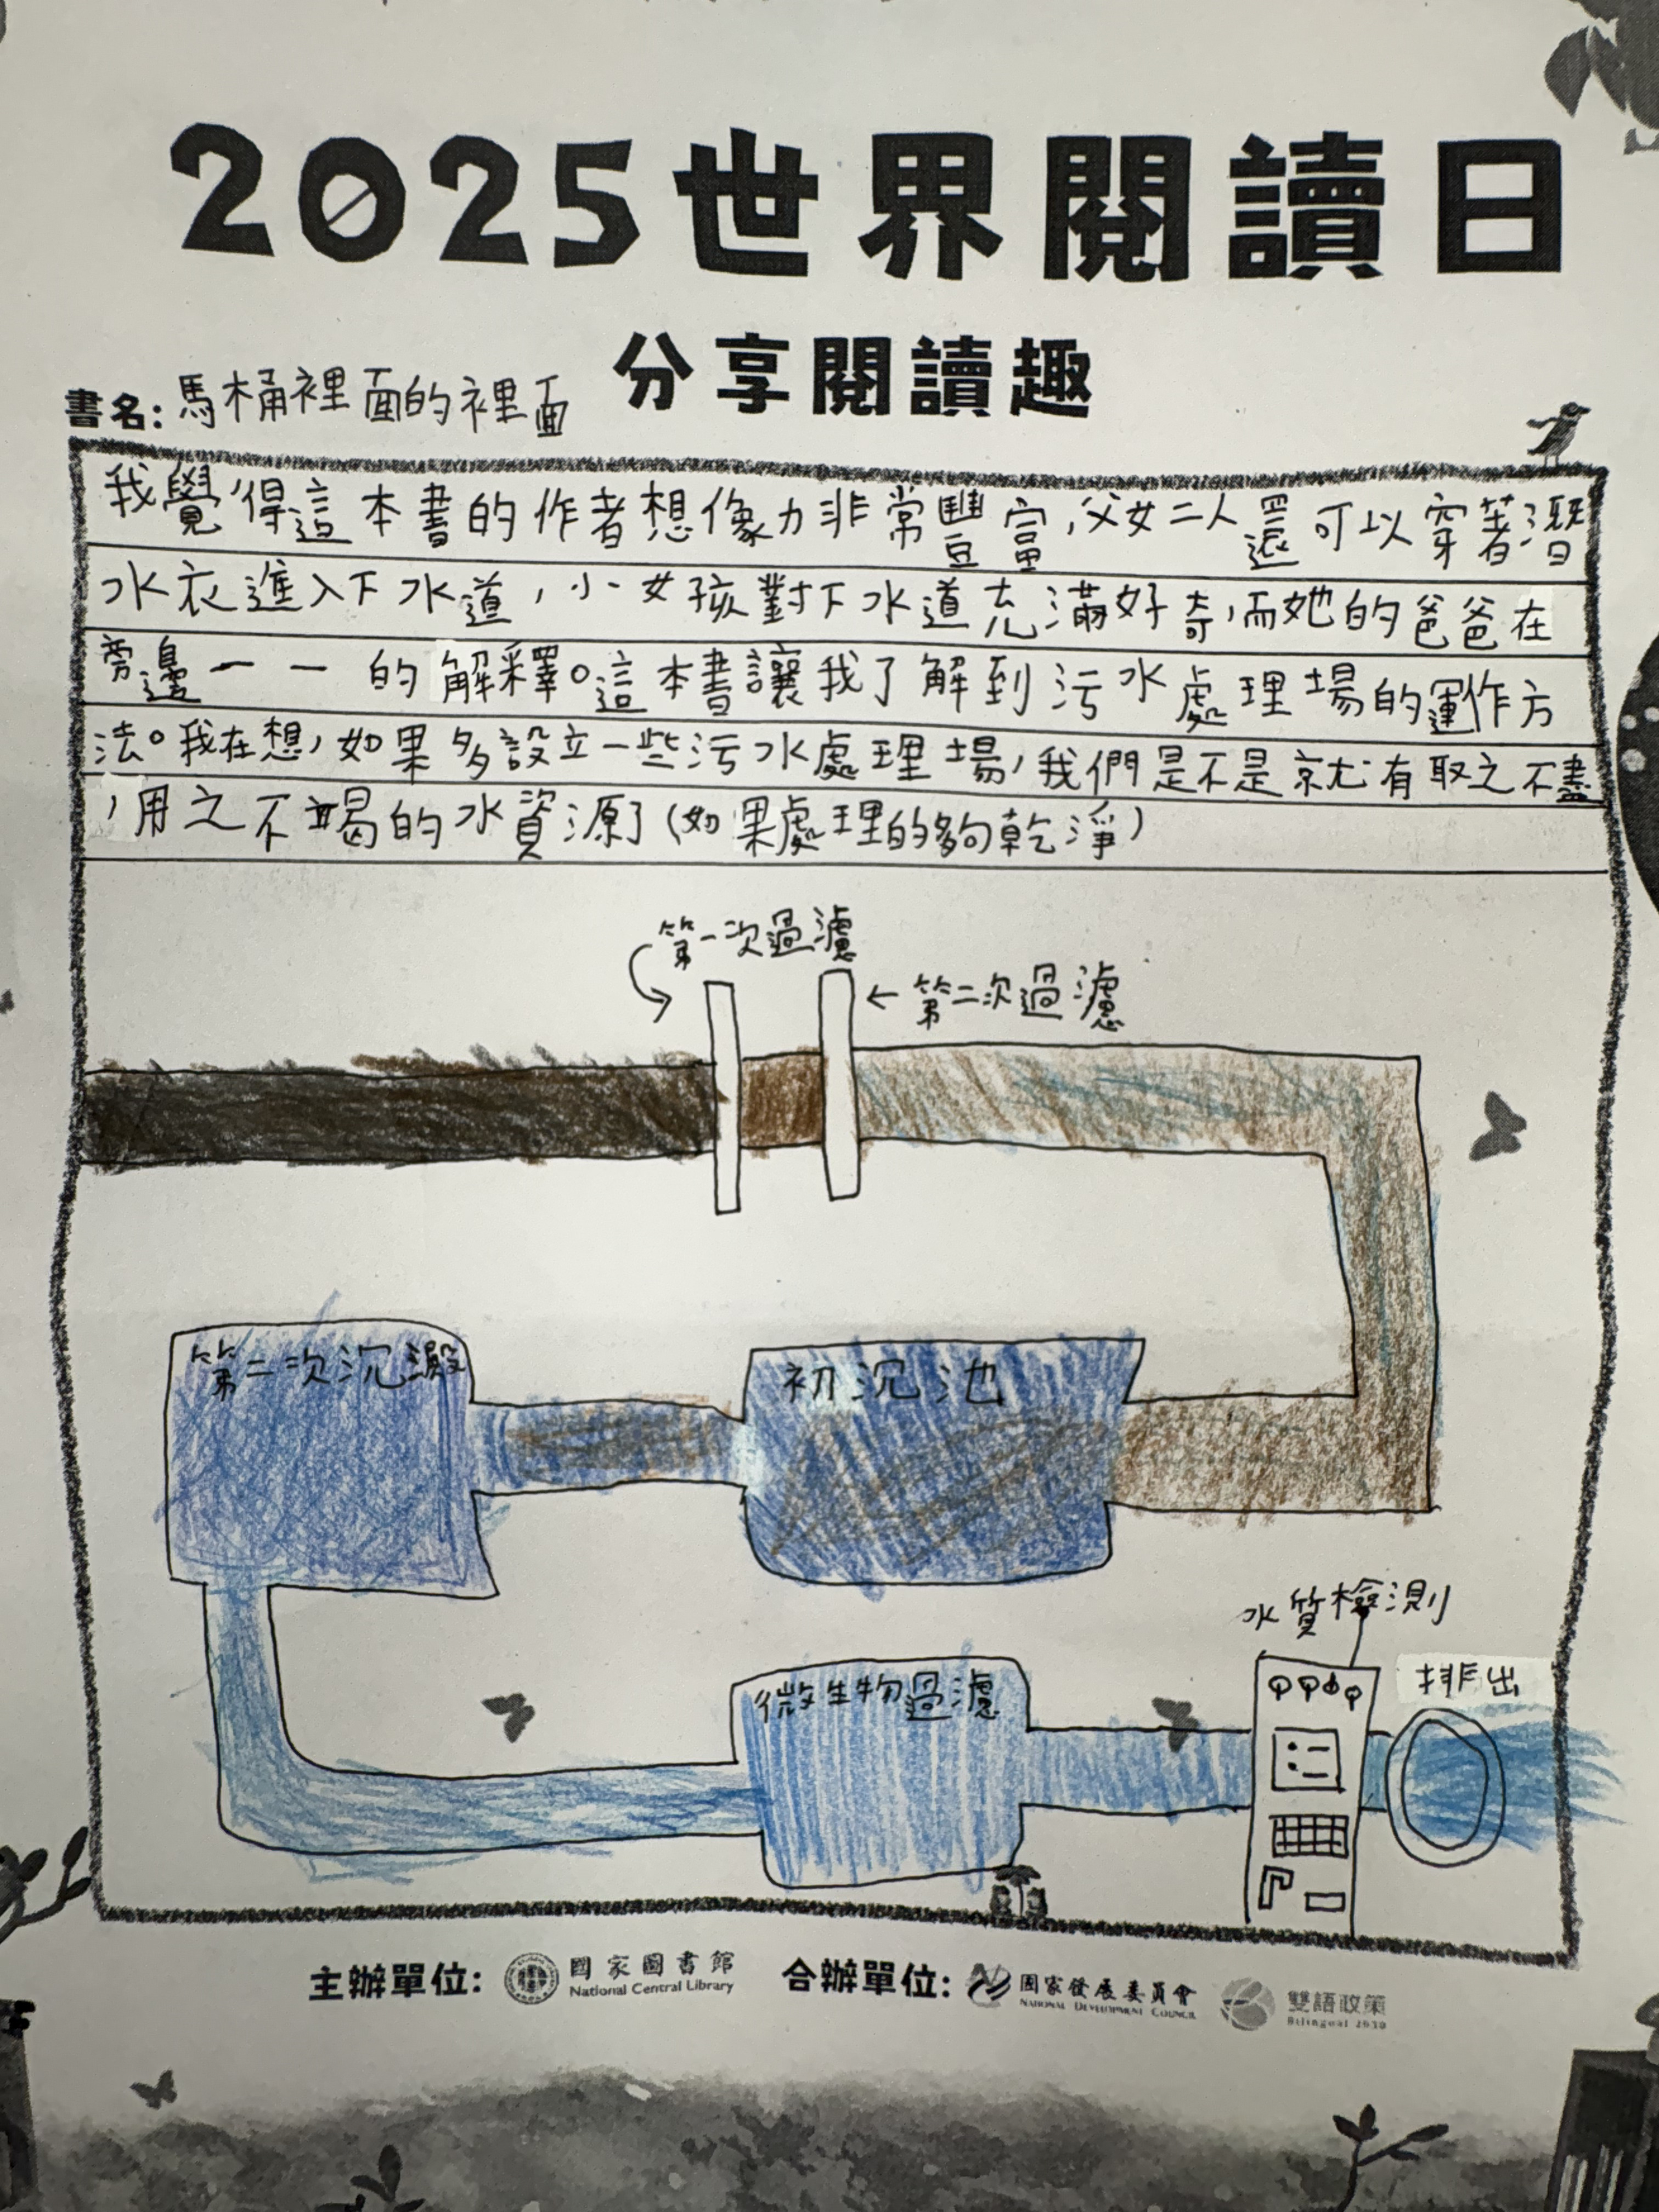 2025世界閱讀日
分享閱讀趣
書名:馬桶裡面的裡面
我覺得這本書的作者想像力非常豐富,父女二人還可以穿著潛
水衣進入下水道,小女孩對下水道充滿好奇,而她的爸爸在
旁邊一一的解釋。這本書讓我了解到污水處理場的運作方
法。我在想,如果多設立一些污水處理場,我們是不是就有取之不盡
,用之不竭的水資源了(如果處理的夠乾淨)
第一次過濾
←第二次過濾
第二次沉澱
初沉池
水質檢測
排出
微生物過濾
主辦單位: 國家圖書館 National Central Library 合辦單位: 國家發展委員會 National Development Council 雙語政策 Bilingual 2030